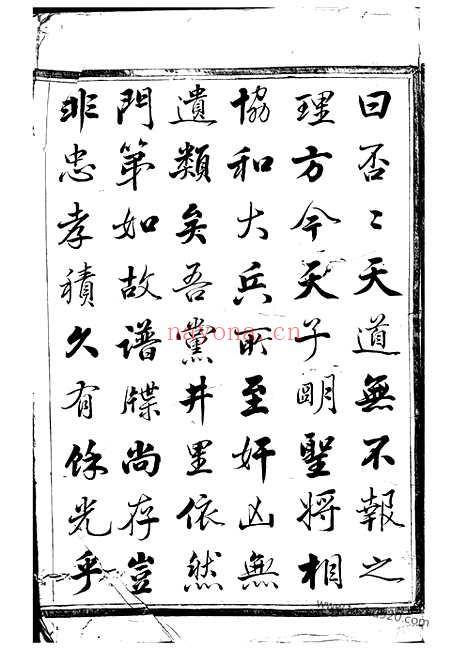 曰否〻天道無不報之
理方今天子明聖將相
協和大兵所至奸凶無
遺類矣吾黨井里依然
門第如故譜牒尚存豈
非忠孝積久有餘光乎
nayona.cn